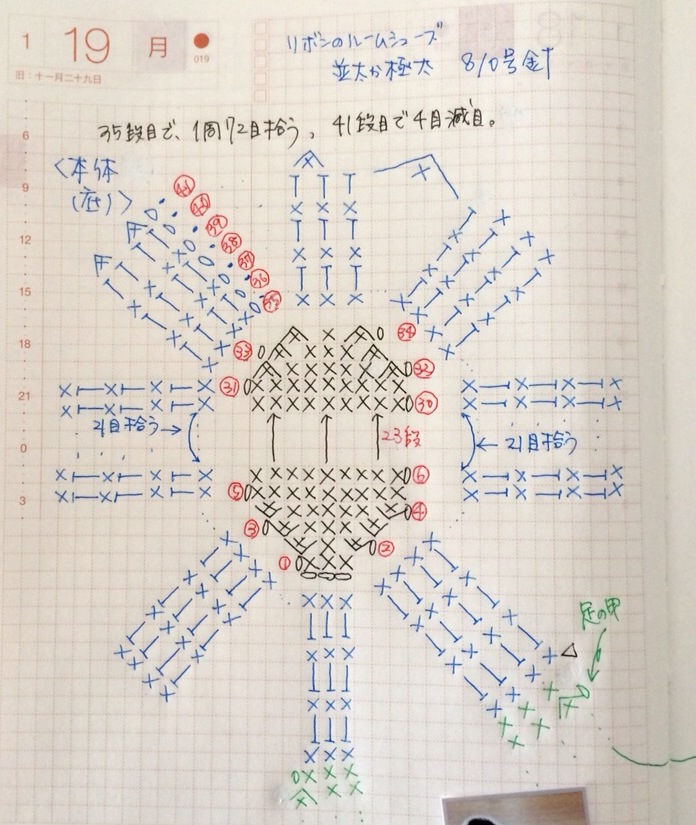 1 19 月
019
旧：十一月二十九日
リボンのルームシューズ
並太か極太 8/0号金十
35段目で、1周72目拾う。41段目で4目減目。
〈本体
(底)〉
6
9
12
15
18
21
0
3
㊶
㊵
㊴
㊳
㊲
㊱
㉟
㉞
㉝
㉜
㉛
㉚
21目拾う→
23段
←21目拾う
⑥
⑤
④
③
②
①
足の甲